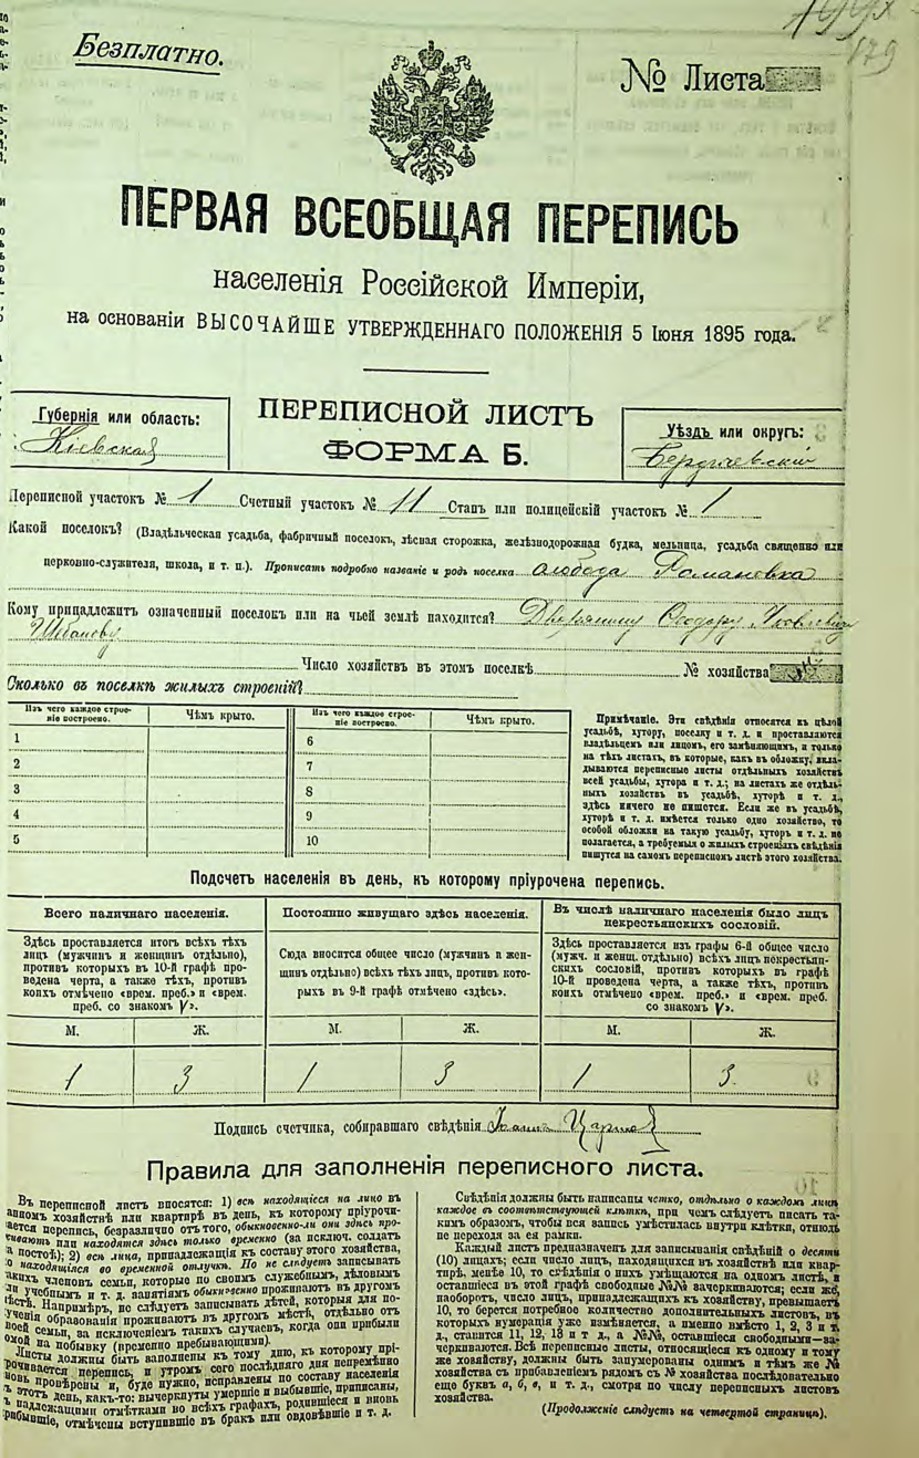 179
Безплатно.
№ Листа
ПЕРВАЯ ВСЕОБЩАЯ ПЕРЕПИСЬ
населенія Россійской Имперіи,
на основаніи ВЫСОЧАЙШЕ УТВЕРЖДЕННАГО ПОЛОЖЕНІЯ 5 Іюня 1895 года.
ПЕРЕПИСНОЙ ЛИСТЪ
ФОРМА Б.
Губернія или область:
Кіевская
Уѣздъ или округъ:
Бердичевскій
Переписной участокъ № 1 Счетный участокъ № 11 Станъ или полицейскій участокъ № 1
Какой поселокъ? (Владѣльческая усадьба, фабричный поселокъ, лѣсная сторожка, желѣзнодорожная будка, мельница, усадьба священно или
церковно-служителя, школа, и т. п.). Прописать подробно названіе и родъ поселка слобода Романовка
Кому принадлежитъ означенный поселокъ или на чьей землѣ находится? Дворянину Ѳеодору
Число хозяйствъ въ этомъ поселкѣ № хозяйства
Сколько въ поселкѣ жилыхъ строеній?
Изъ чего каждое строе-
ніе построено.
Чѣмъ крыто.
Изъ чего каждое строе-
ніе построено.
Чѣмъ крыто.
1
2
3
4
5
6
7
8
9
10
Примѣчаніе. Эти свѣдѣнія относятся къ цѣлой
усадьбѣ, хутору, поселку и т. д. и проставляются
владѣльцемъ или лицомъ, его замѣняющимъ, и только
на тѣхъ листахъ, въ которые, какъ въ обложку, вкла-
дываются переписные листы отдѣльныхъ хозяйствъ
всей усадьбы, хутора и т. д.; на листахъ же отдѣль-
ныхъ хозяйствъ въ усадьбѣ, хуторѣ и т. д.,
здѣсь ничего не пишется. Если же въ усадьбѣ,
хуторѣ и т. д. имѣется только одно хозяйство, то
особой обложки на такую усадьбу, хуторъ и т. д. не
полагается, а требуемыя о жилыхъ строеніяхъ свѣдѣнія
пишутся на самомъ переписномъ листѣ этого хозяйства.
Подсчетъ населенія въ день, къ которому пріурочена перепись.
Всего наличнаго населенія.
Здѣсь проставляется итогъ всѣхъ тѣхъ
лицъ (мужчинъ и женщинъ отдѣльно),
противъ которыхъ въ 10-й графѣ про-
ведена черта, а также тѣхъ, противъ
коихъ отмѣчено «врем. преб.» и «врем.
преб. со знакомъ V».
М. Ж.
1 3
Постоянно живущаго здѣсь населенія.
Сюда вносится общее число (мужчинъ и жен-
щинъ отдѣльно) всѣхъ тѣхъ лицъ, противъ кото-
рыхъ въ 9-й графѣ отмѣчено «здѣсь».
М. Ж.
1 3
Въ числѣ наличнаго населенія было лицъ
некрестьянскихъ сословій.
Здѣсь проставляется изъ графы 6-й общее число
(мужч. и женщ. отдѣльно) всѣхъ лицъ некрестьян-
скихъ сословій, противъ которыхъ въ графѣ
10-й проведена черта, а также тѣхъ, противъ
коихъ отмѣчено «врем. преб.» и «врем. преб.
со знакомъ V».
М. Ж.
1 3
Подпись счетчика, собиравшаго свѣдѣнія
Правила для заполненія переписного листа.
Въ переписной листъ вносятся: 1) всѣ находящіеся на лицо въ
данномъ хозяйствѣ или квартирѣ въ день, къ которому пріурочи-
вается перепись, безразлично отъ того, обыкновенно-ли они здѣсь про-
живаютъ или находятся здѣсь только временно (за исключ. солдатъ
на постоѣ); 2) всѣ лица, принадлежащія къ составу этого хозяйства,
но находящіяся во временной отлучкѣ. Но не слѣдуетъ записывать
такихъ членовъ семьи, которые по своимъ служебнымъ, дѣловымъ
или учебнымъ и т. д. занятіямъ обыкновенно проживаютъ въ другомъ
мѣстѣ. Напримѣръ, не слѣдуетъ записывать дѣтей, которыя для по-
лученія образованія проживаютъ въ другомъ мѣстѣ, отдѣльно отъ
своей семьи, за исключеніемъ такихъ случаевъ, когда они прибыли
домой на побывку (временно пребывающими).
Листы должны быть заполнены къ тому дню, къ которому прі-
урочивается перепись, и утромъ сего послѣдняго дня непремѣнно
вновь провѣрены и, буде нужно, исправлены по составу населенія
въ этотъ день, какъ-то: вычеркнуты умершіе и выбывшіе, приписаны,
съ надлежащими отмѣтками во всѣхъ графахъ, родившіеся и вновь
прибывшіе, отмѣчены вступившіе въ бракъ или овдовѣвшіе и т. д.
Свѣдѣнія должны быть написаны четко, отдѣльно о каждомъ лицѣ
каждое въ соотвѣтствующей клѣткѣ, при чемъ слѣдуетъ писать та-
кимъ образомъ, чтобы вся запись умѣстилась внутри клѣтки, отнюдь
не переходя за ея рамки.
Каждый листъ предназначенъ для записыванія свѣдѣній о десяти
(10) лицахъ; если число лицъ, находящихся въ хозяйствѣ или квар-
тирѣ, менѣе 10, то свѣдѣнія о нихъ умѣщаются на одномъ листѣ, и
оставшіеся въ этой графѣ свободные №№ зачеркиваются; если же,
наоборотъ, число лицъ, принадлежащихъ къ хозяйству, превышаетъ
10, то берется потребное количество дополнительныхъ листовъ, въ
которыхъ нумерація уже измѣняется, а именно вмѣсто 1, 2, 3 и т.
д., ставится 11, 12, 13 и т. д., а №№, оставшіеся свободными—за-
черкиваются. Всѣ переписные листы, относящіеся къ одному и тому
же хозяйству, должны быть занумерованы однимъ и тѣмъ же №
хозяйства съ прибавленіемъ рядомъ съ № хозяйства послѣдовательно
еще буквъ а, б, в, и т. д., смотря по числу переписныхъ листовъ
хозяйства.
(Продолженіе слѣдуетъ на четвертой страницѣ).